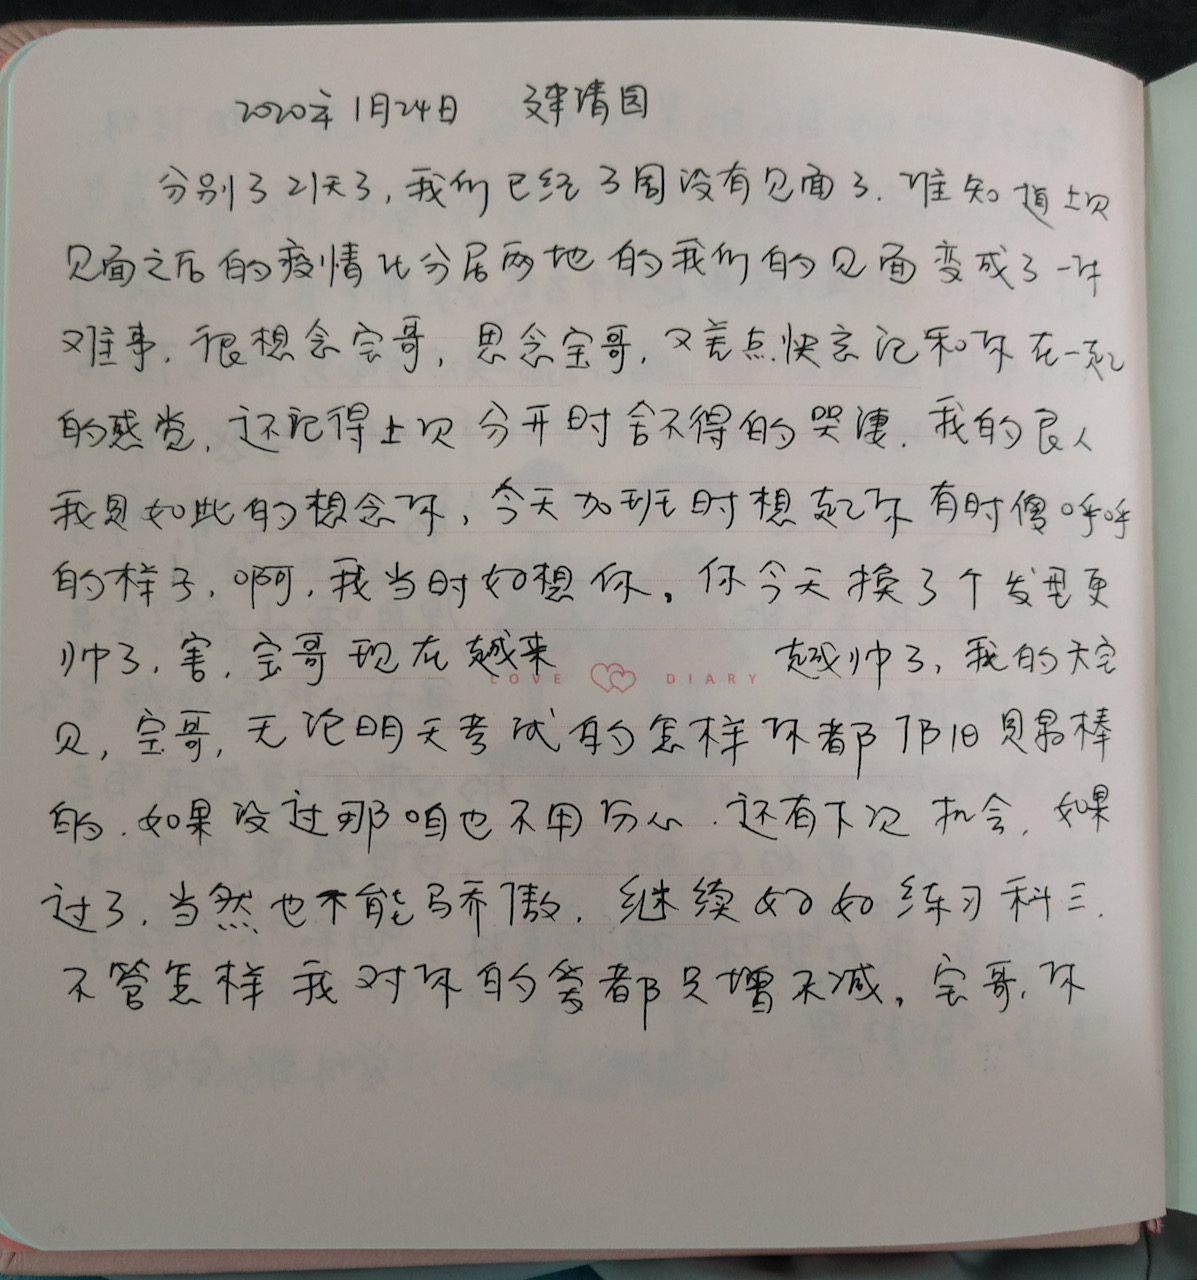 2020年1月24日 建靖园
分别了21天了,我们已经3周没有见面了.谁知道上次
见面之后的疫情让分居两地的我们的见面变成了一件
难事.很想念宝哥,思念宝哥,又差点快忘记和你在一起
的感觉,还记得上次分开时舍不得的哭凄.我的良人
我是如此的想念你,今天加班时想起你有时傻呼呼
的样子,啊,我当时好想你。你今天换了个发型更
帅了,害,宝哥现在越来 越帅了,我的大宝
LOVE DIARY
贝,宝哥,无论明天考试的怎样你都依旧是最棒
的.如果没过那咱也不用灰心.还有下次机会,如果
过了,当然也不能骄傲,继续好好练习科三.
不管怎样我对你的爱都只增不减。宝哥,你